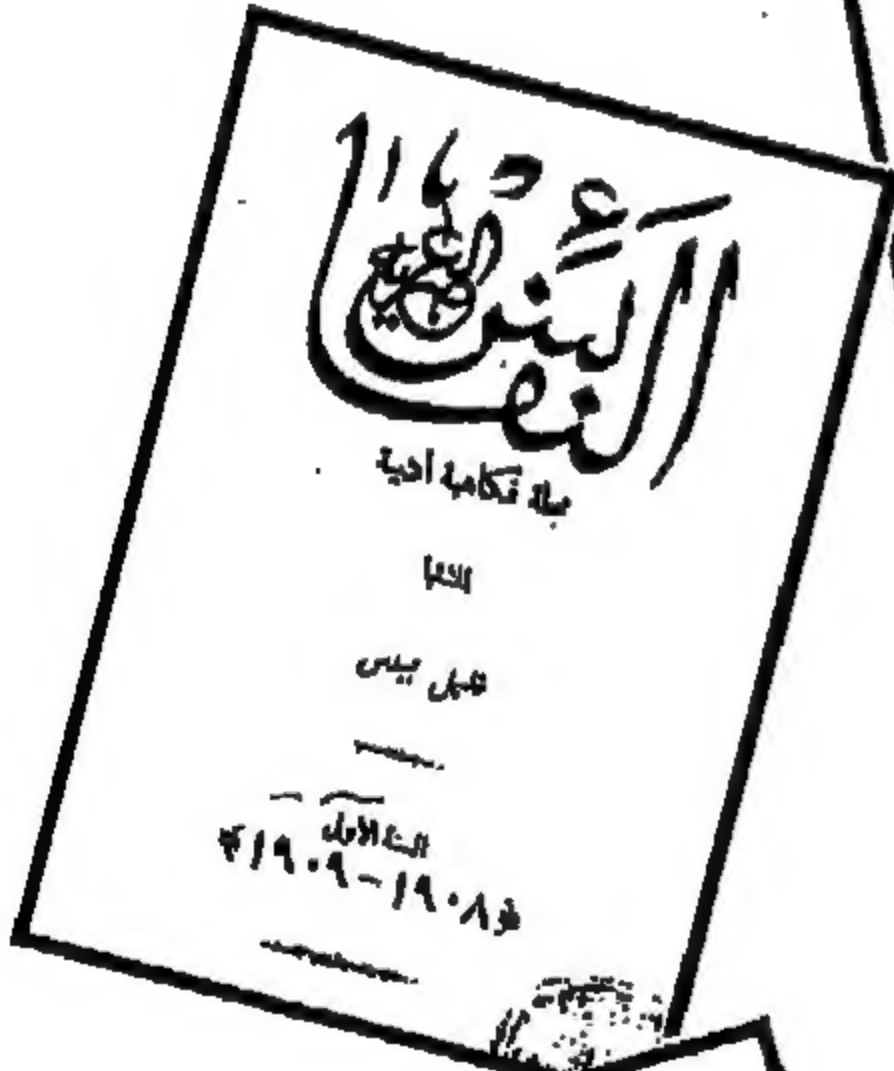 النفائس
العصرية
مجلة فكاهية أدبية
خليل بيدس
السنة الأولى
﴿١٩٠٨–١٩٠٩﴾